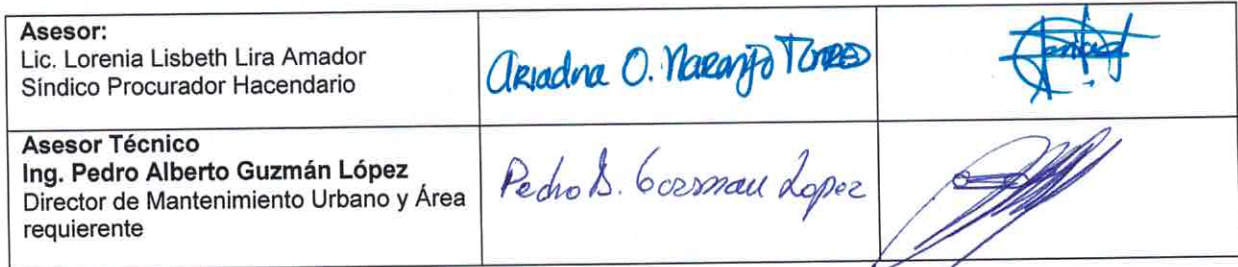 Asesor:
Lic. Lorenia Lisbeth Lira Amador
Síndico Procurador Hacendario
Ariadna O. Naranjo Torres
Asesor Técnico
Ing. Pedro Alberto Guzmán López
Director de Mantenimiento Urbano y Área
requierente
Pedro A. Guzman Lopez